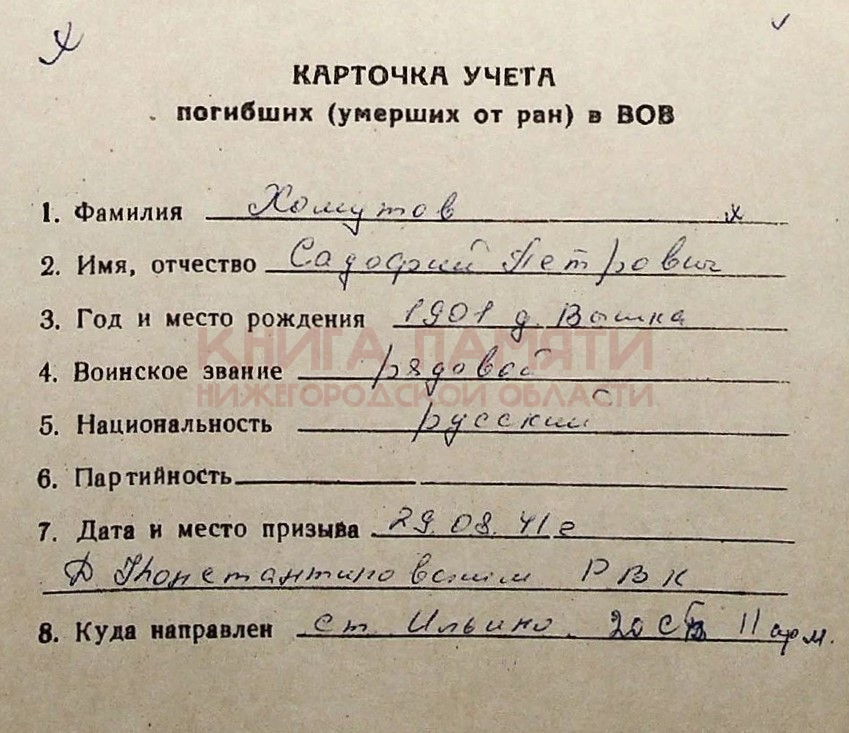 КАРТОЧКА УЧЕТА
погибших (умерших от ран) в ВОВ
1. Фамилия Хомутов
2. Имя, отчество Садофий Петрович
3. Год и место рождения 1901 д. Вышка
КНИГА ПАМЯТИ
4. Воинское звание рядовой
НИЖЕГОРОДСКОЙ ОБЛАСТИ
5. Национальность русский
6. Партийность
7. Дата и место призыва 29.08.41 г
Д Константиновским РВК
8. Куда направлен ст. Ильино. 20 СБ 11 арм.